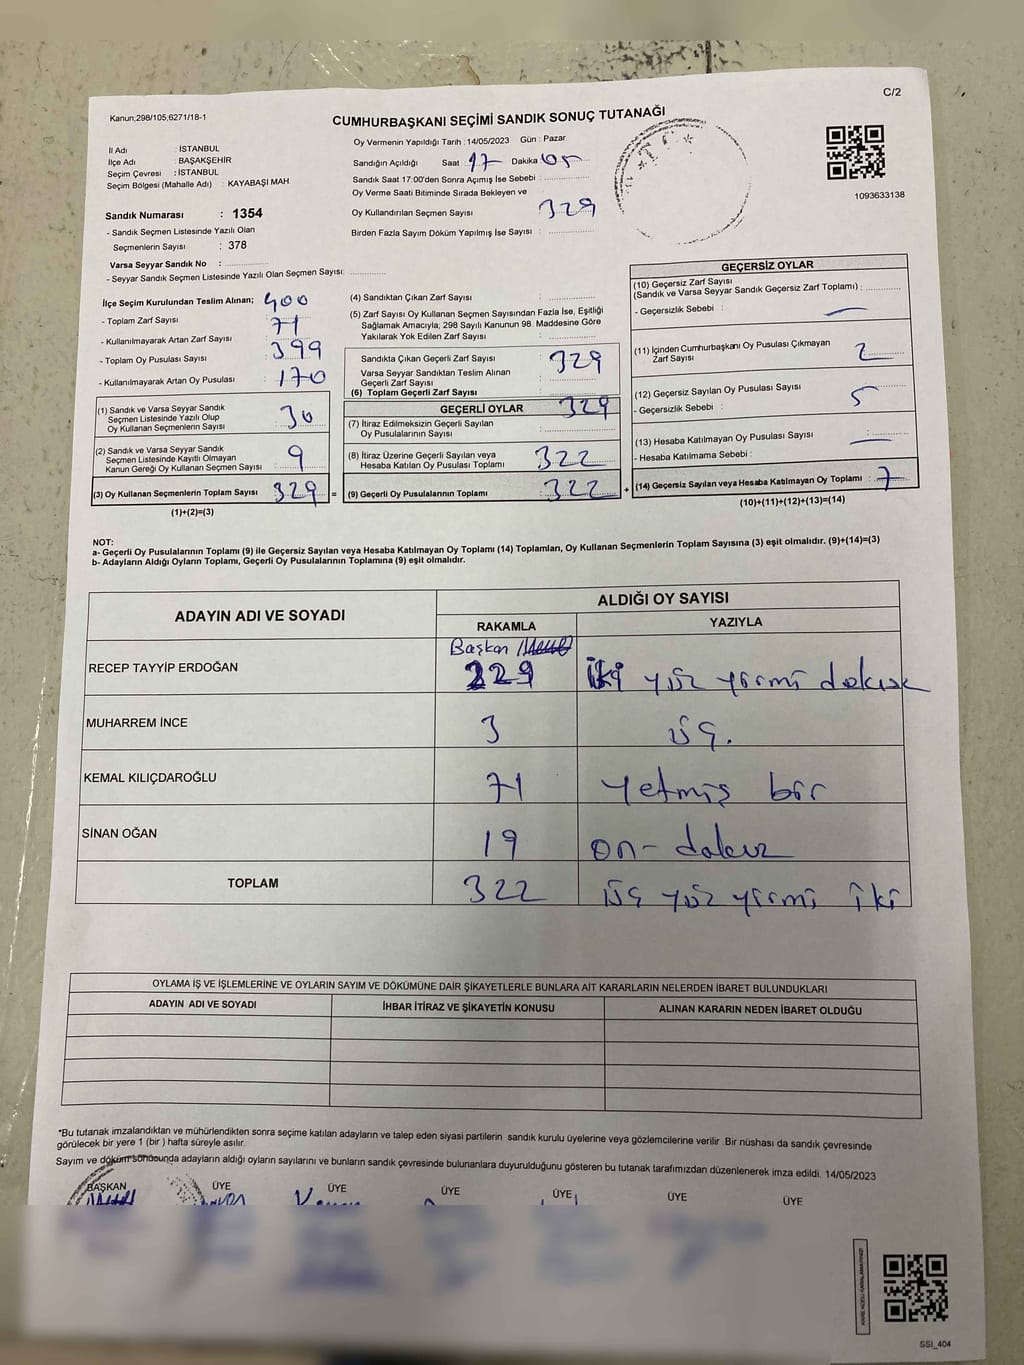 C/2
Kanun;298/105,6271/18-1
CUMHURBAŞKANI SEÇİMİ SANDIK SONUÇ TUTANAĞI
1093633138
İl Adı : İSTANBUL
İlçe Adı : BAŞAKŞEHİR
Seçim Çevresi : İSTANBUL
Seçim Bölgesi (Mahalle Adı) : KAYABAŞI MAH
Sandık Numarası : 1354
- Sandık Seçmen Listesinde Yazılı Olan
Seçmenlerin Sayısı : 378
Varsa Seyyar Sandık No :
- Seyyar Sandık Seçmen Listesinde Yazılı Olan Seçmen Sayısı:
Oy Vermenin Yapıldığı Tarih : 14/05/2023 Gün : Pazar
Sandığın Açıldığı Saat 17 Dakika 05
Sandık Saat 17.00'den Sonra Açımış İse Sebebi :
Oy Verme Saati Bitiminde Sırada Bekleyen ve
Oy Kullandırılan Seçmen Sayısı : 329
Birden Fazla Sayım Döküm Yapılmış İse Sayısı :
İlçe Seçim Kurulundan Teslim Alınan; 400
- Toplam Zarf Sayısı
- Kullanılmayarak Artan Zarf Sayısı : 71
- Toplam Oy Pusulası Sayısı : 399
- Kullanılmayarak Artan Oy Pusulası : 170
(1) Sandık ve Varsa Seyyar Sandık
Seçmen Listesinde Yazılı Olup
Oy Kullanan Seçmenlerin Sayısı : 30
(2) Sandık ve Varsa Seyyar Sandık
Seçmen Listesinde Kayıtlı Olmayan
Kanun Gereği Oy Kullanan Seçmen Sayısı : 9
(3) Oy Kullanan Seçmenlerin Toplam Sayısı : 329 =
(1)+(2)=(3)
(4) Sandıktan Çıkan Zarf Sayısı :
(5) Zarf Sayısı Oy Kullanan Seçmen Sayısından Fazla İse, Eşitliği
Sağlamak Amacıyla, 298 Sayılı Kanunun 98. Maddesine Göre
Yakılarak Yok Edilen Zarf Sayısı :
Sandıkta Çıkan Geçerli Zarf Sayısı : 329
Varsa Seyyar Sandıktan Teslim Alınan
Geçerli Zarf Sayısı :
(6) Toplam Geçerli Zarf Sayısı : 329
GEÇERLİ OYLAR
(7) İtiraz Edilmeksizin Geçerli Sayılan
Oy Pusulalarının Sayısı :
(8) İtiraz Üzerine Geçerli Sayılan veya
Hesaba Katılan Oy Pusulası Toplamı : 322
(9) Geçerli Oy Pusulalarının Toplamı : 322 +
GEÇERSİZ OYLAR
(10) Geçersiz Zarf Sayısı
(Sandık ve Varsa Seyyar Sandık Geçersiz Zarf Toplamı) :
- Geçersizlik Sebebi : —
(11) İçinden Cumhurbaşkanı Oy Pusulası Çıkmayan
Zarf Sayısı : 2
(12) Geçersiz Sayılan Oy Pusulası Sayısı : 5
- Geçersizlik Sebebi :
(13) Hesaba Katılmayan Oy Pusulası Sayısı : —
- Hesaba Katılmama Sebebi :
(14) Geçersiz Sayılan veya Hesaba Katılmayan Oy Toplamı : 7
(10)+(11)+(12)+(13)=(14)
NOT:
a- Geçerli Oy Pusulalarının Toplamı (9) ile Geçersiz Sayılan veya Hesaba Katılmayan Oy Toplamı (14) Toplamları, Oy Kullanan Seçmenlerin Toplam Sayısına (3) eşit olmalıdır. (9)+(14)=(3)
b- Adayların Aldığı Oyların Toplamı, Geçerli Oy Pusulalarının Toplamına (9) eşit olmalıdır.
ADAYIN ADI VE SOYADI
ALDIĞI OY SAYISI
RAKAMLA YAZIYLA
Başkan
RECEP TAYYİP ERDOĞAN 229 iki yüz yirmi dokuz
MUHARREM İNCE 3 üç.
KEMAL KILIÇDAROĞLU 71 yetmiş bir
SİNAN OĞAN 19 on-dokuz
TOPLAM 322 üç yüz yirmi iki
OYLAMA İŞ VE İŞLEMLERİNE VE OYLARIN SAYIM VE DÖKÜMÜNE DAİR ŞİKAYETLERLE BUNLARA AİT KARARLARIN NELERDEN İBARET BULUNDUKLARI
ADAYIN ADI VE SOYADI İHBAR İTİRAZ VE ŞİKAYETİN KONUSU ALINAN KARARIN NEDEN İBARET OLDUĞU
*Bu tutanak imzalandıktan ve mühürlendikten sonra seçime katılan adayların ve talep eden siyasi partilerin sandık kurulu üyelerine veya gözlemcilerine verilir .Bir nüshası da sandık çevresinde
görülecek bir yere 1 (bir ) hafta süreyle asılır.
Sayım ve döküm sonucunda adayların aldığı oyların sayılarını ve bunların sandık çevresinde bulunanlara duyurulduğunu gösteren bu tutanak tarafımızdan düzenlenerek imza edildi. 14/05/2023
BAŞKAN ÜYE ÜYE ÜYE ÜYE ÜYE ÜYE
SSI_404